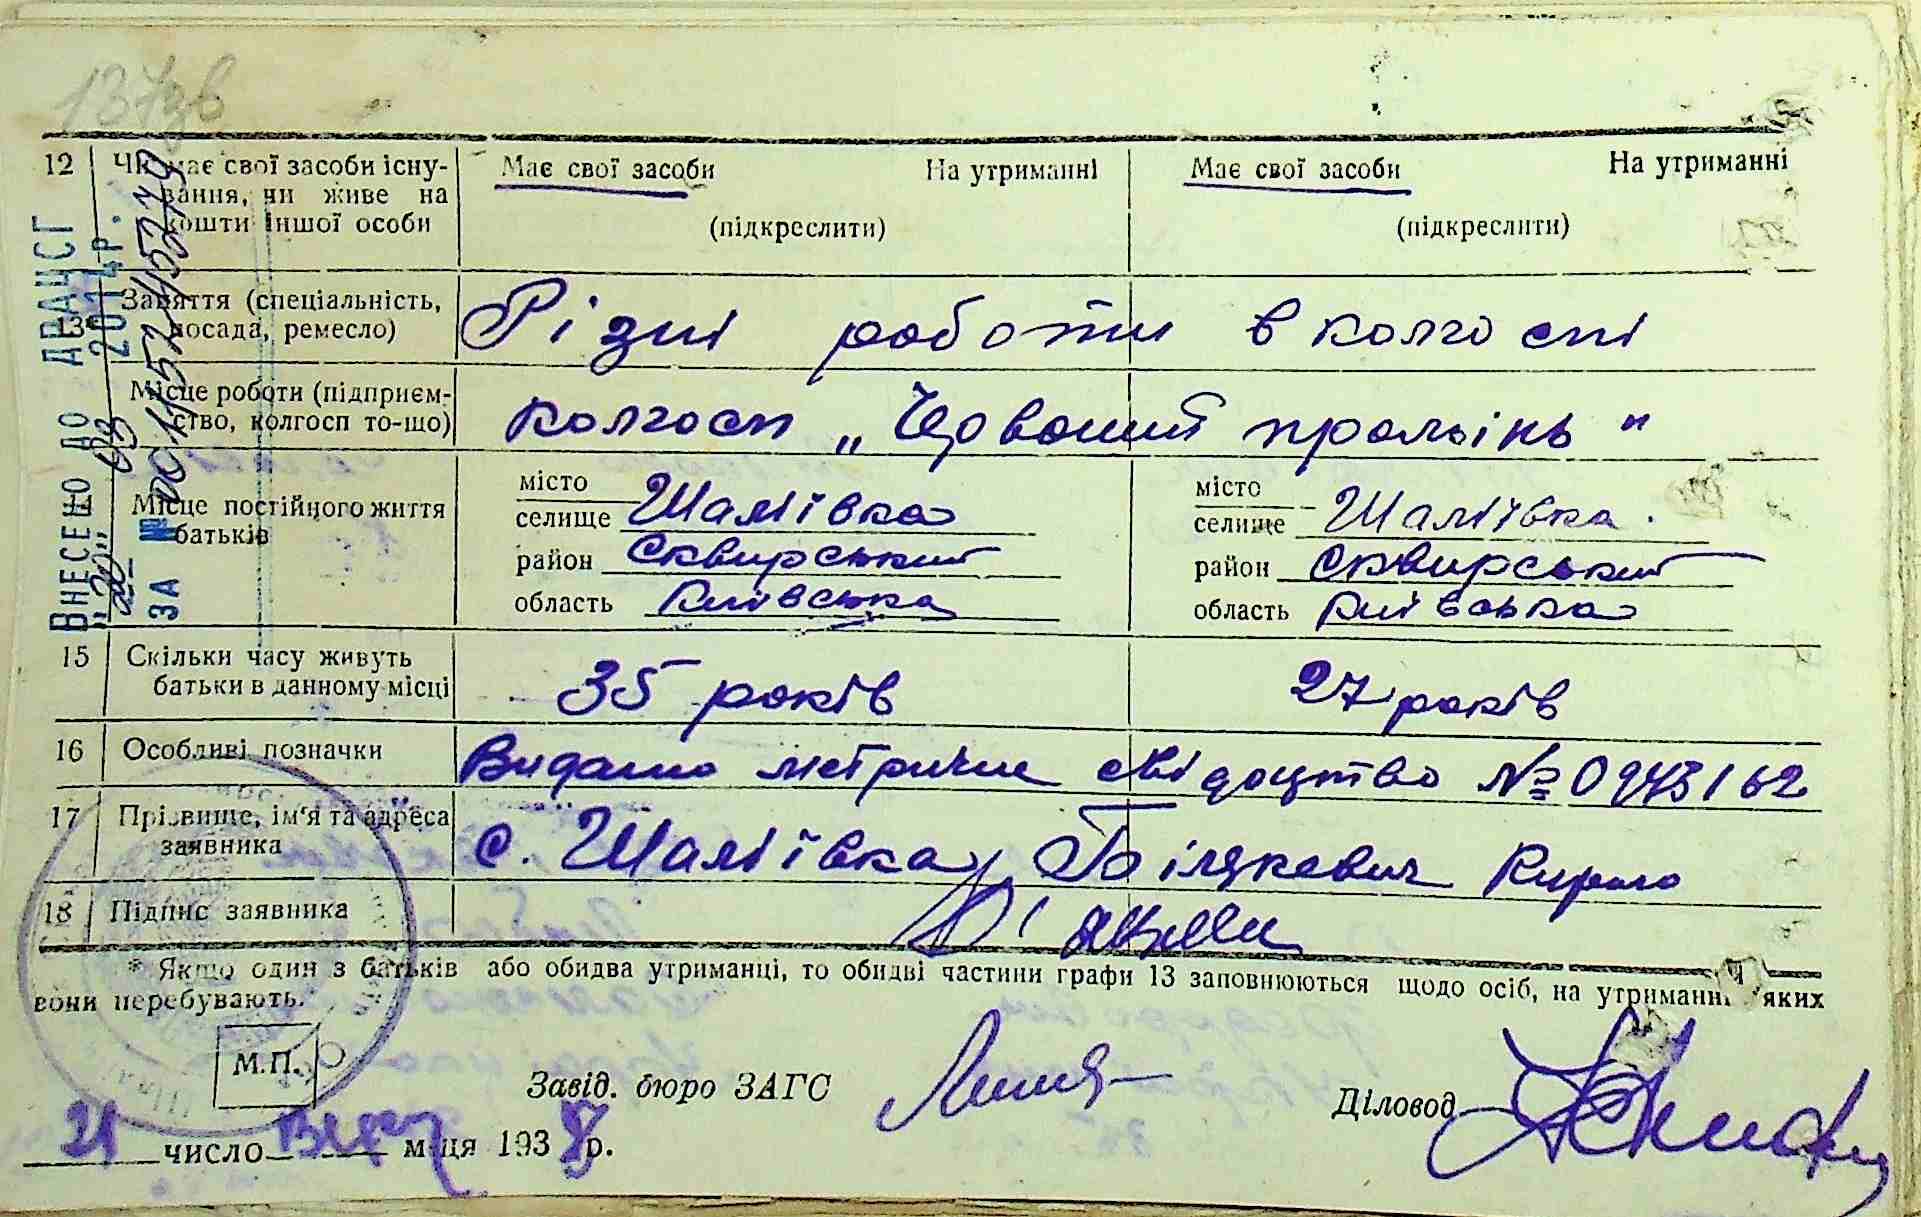 137зв
12 Чи має свої засоби існу- Має свої засоби На утриманні Має свої засоби На утриманні
вання, чи живе на
кошти іншої особи (підкреслити) (підкреслити)
13* Заняття (спеціальність, Різні роботи в колгоспі
посада, ремесло)
Місце роботи (підприєм- колгосп „Червоний промінь"
ство, колгосп то-що)
14 Місце постійного життя місто Шаліївка місто Шаліївка
батьків селище селище
район Сквирський район Сквирський
область Київська область Київська
15 Скільки часу живуть 35 років 27 років
батьки в данному місці
16 Особливі позначки Видано метричне свідоцтво № 0943162
17 Прізвище, ім'я та адреса с. Шаліївка, Кирило
заявника
18 Підпис заявника
* Якщо один з батьків або обидва утриманці, то обидві частини графи 13 заповнюються щодо осіб, на утриманні яких
вони перебувають.
М.П.
Завід. бюро ЗАГС Діловод
21 число м-ця 1938 р.
ВНЕСЕНО ДО ДРАЦСГ
"20" 03 2014 р.
ЗА №